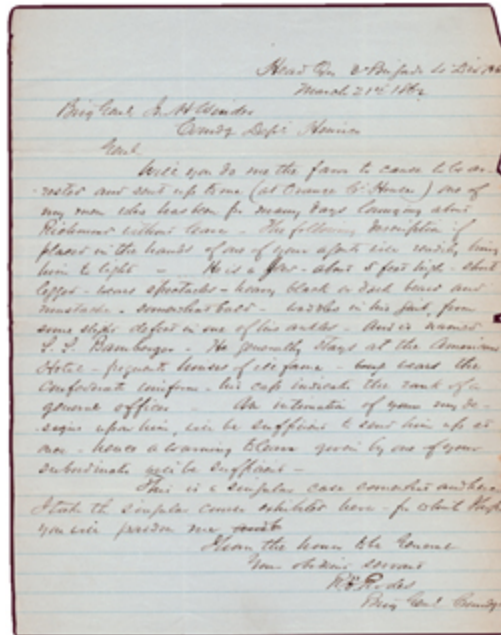 Head Qrs 2d Brigade
March 21st 1862
Brig Genl J. H. Winder
Comdg Dept Henrico
Genl
Will you do me the favor to cause to be ar-
-rested and sent up to me (at Orange C. House) one of
my men who has been for many days lounging about
Richmond without leave - The following description if
placed in the hands of one of your agents will readily bring
him to light - He is a Jew - about 5 feet high - short
legged - wears spectacles - heavy black or dark beard and
mustache - somewhat bald - waddles in his gait, from
some slight defect in one of his ankles - And is named
Bamberger - He generally stays at the American
Hotel - frequents houses of ill fame - wears the
Confederate uniform - his cap indicates the rank of a
general officer - An intimation of your my de-
-signs upon him, will be sufficient to send him up at
once - hence a warning to leave given by one of your
subordinates will be sufficient -
This is a singular case somewhat and hence
I took the singular course exhibited here - for which I hope
you will pardon me
I have the honor to be General
Your obedient servant
R. E. Rodes
Brig Genl Comdg